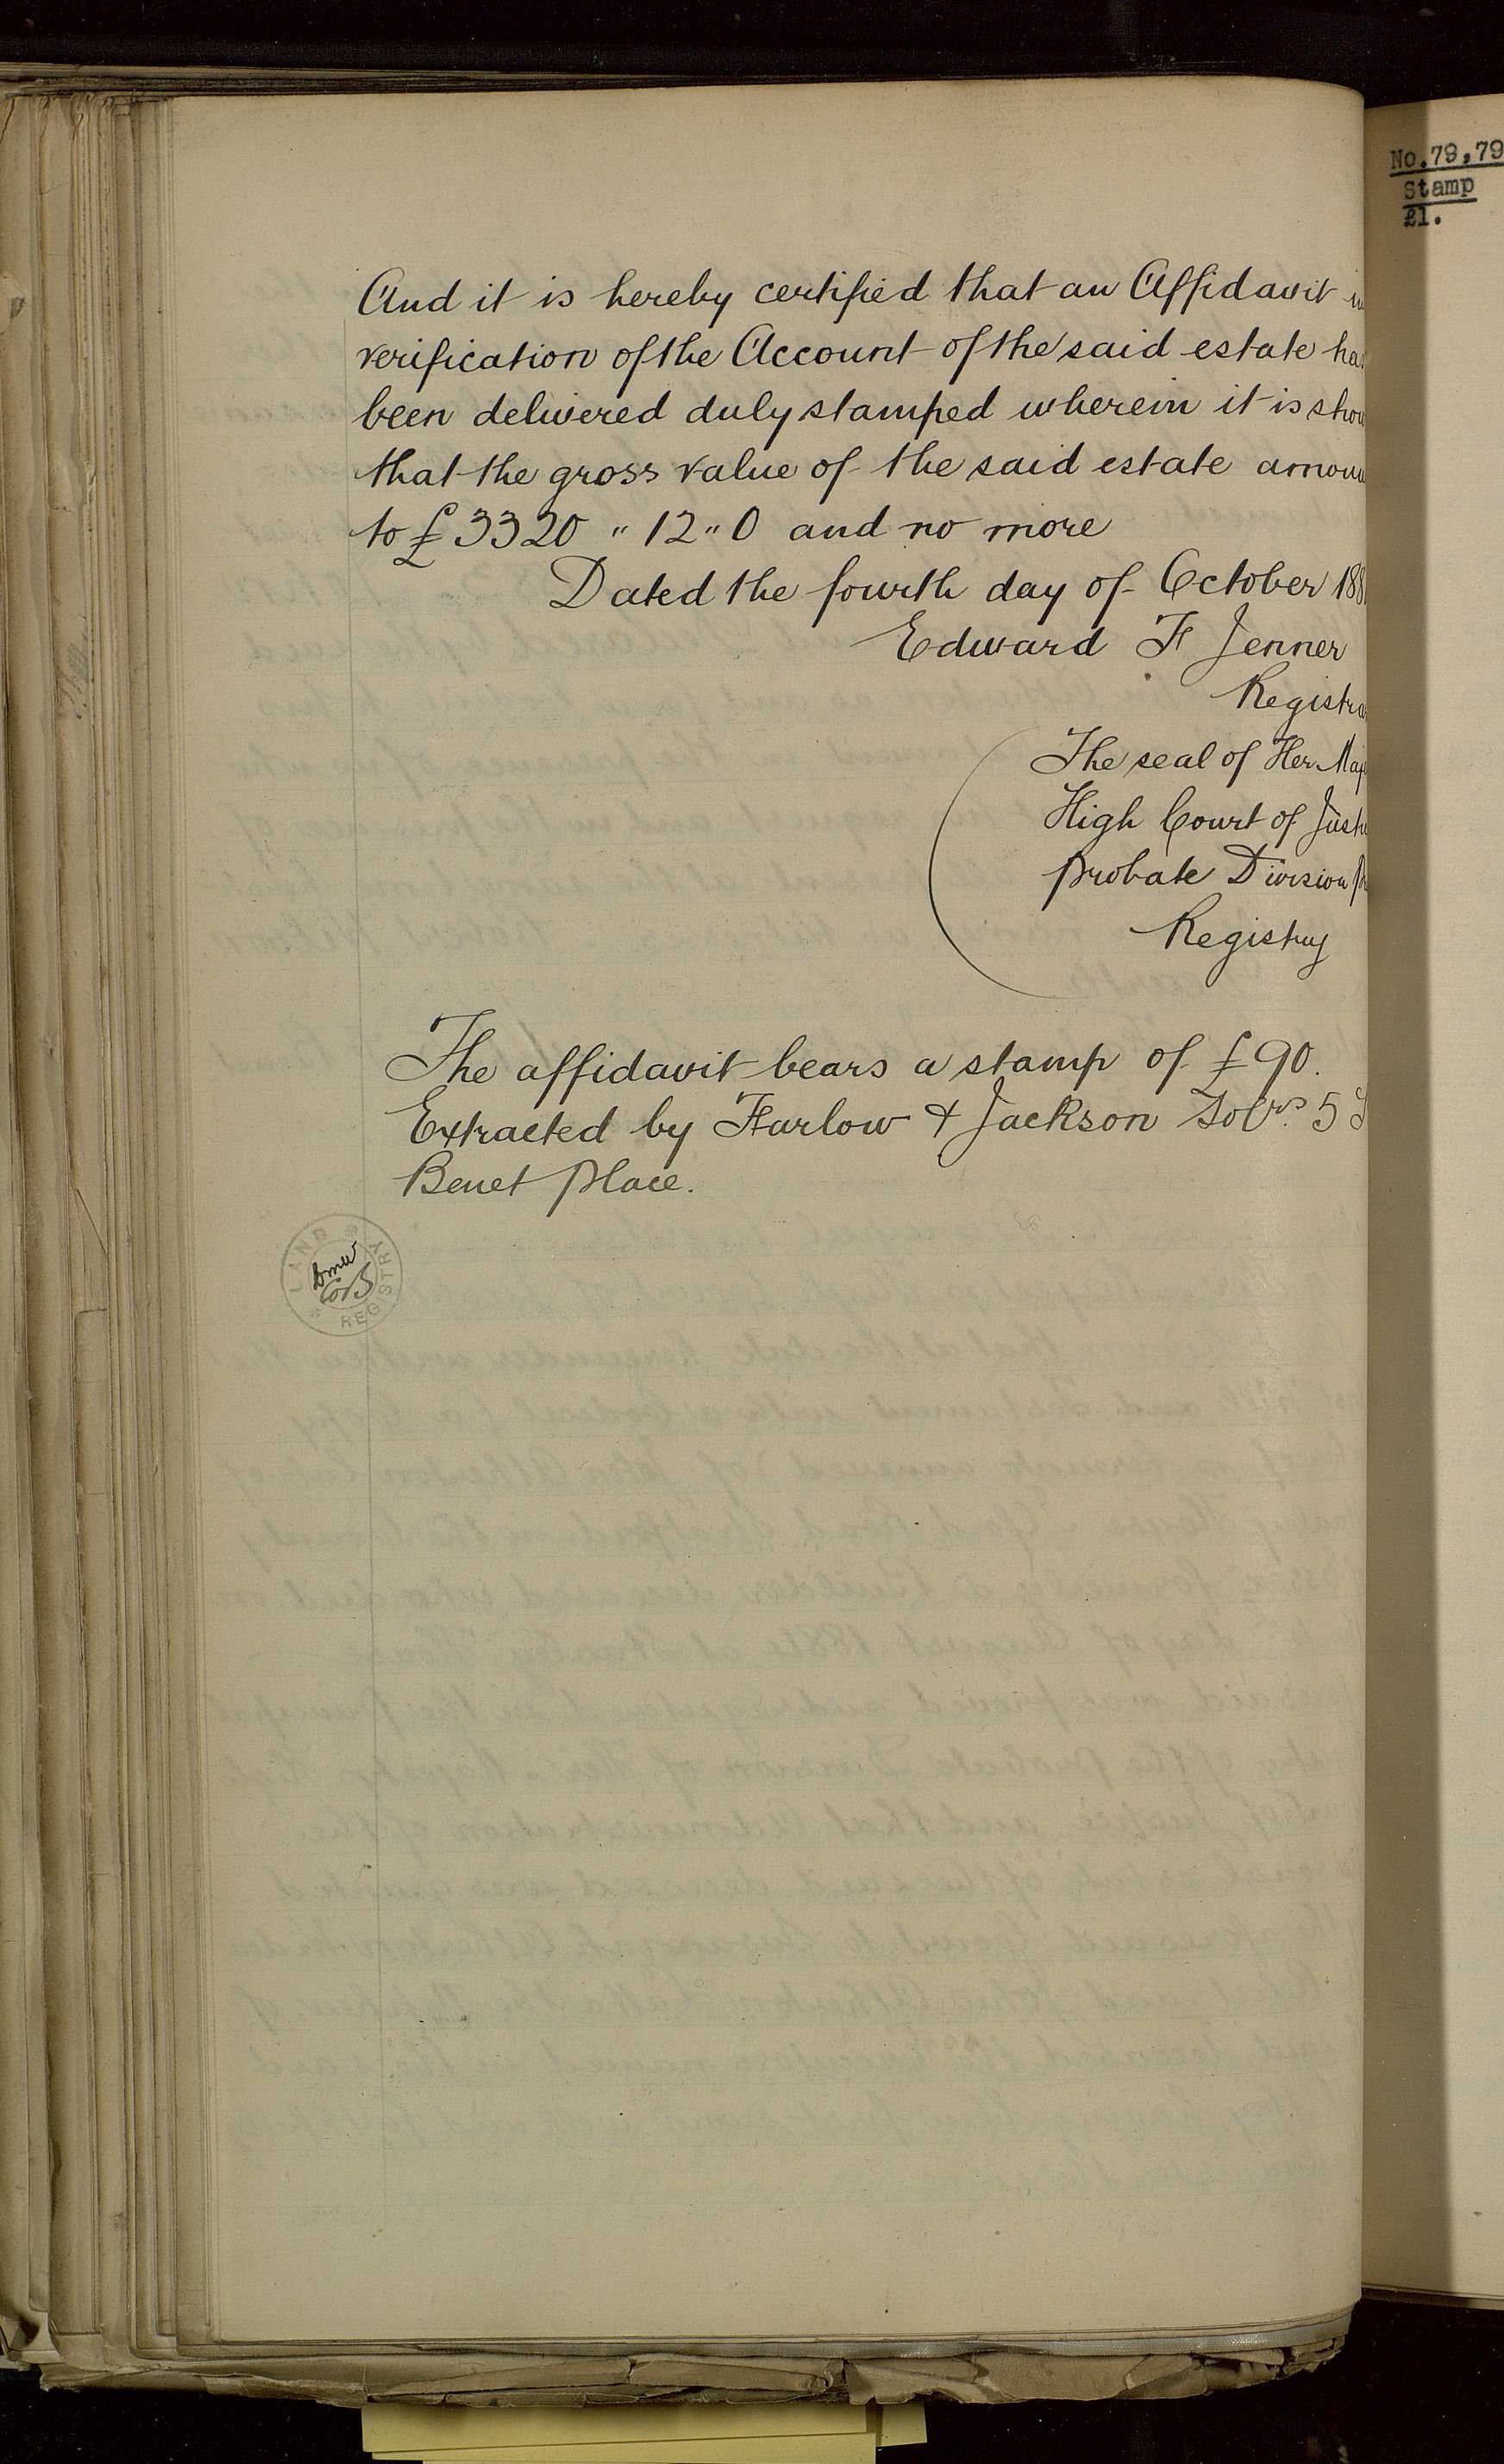 And it is hereby certified that an Affidavit
verification of the Account of the said estate ha
been delivered duly stamped wherein it is show
that the gross value of the said estate amoun
to £3320 " 12 " 0 and no more
Dated the fourth day of October 188
Edward F Jenner
Registra
The seal of Her Maj
High Court of Justi
Probate Division
Registry
The affidavit bears a stamp of £90.
Extracted by Farlow & Jackson Solrs. 5
Benet Place.
LAND REGISTRY
No.79,79
Stamp
£1.